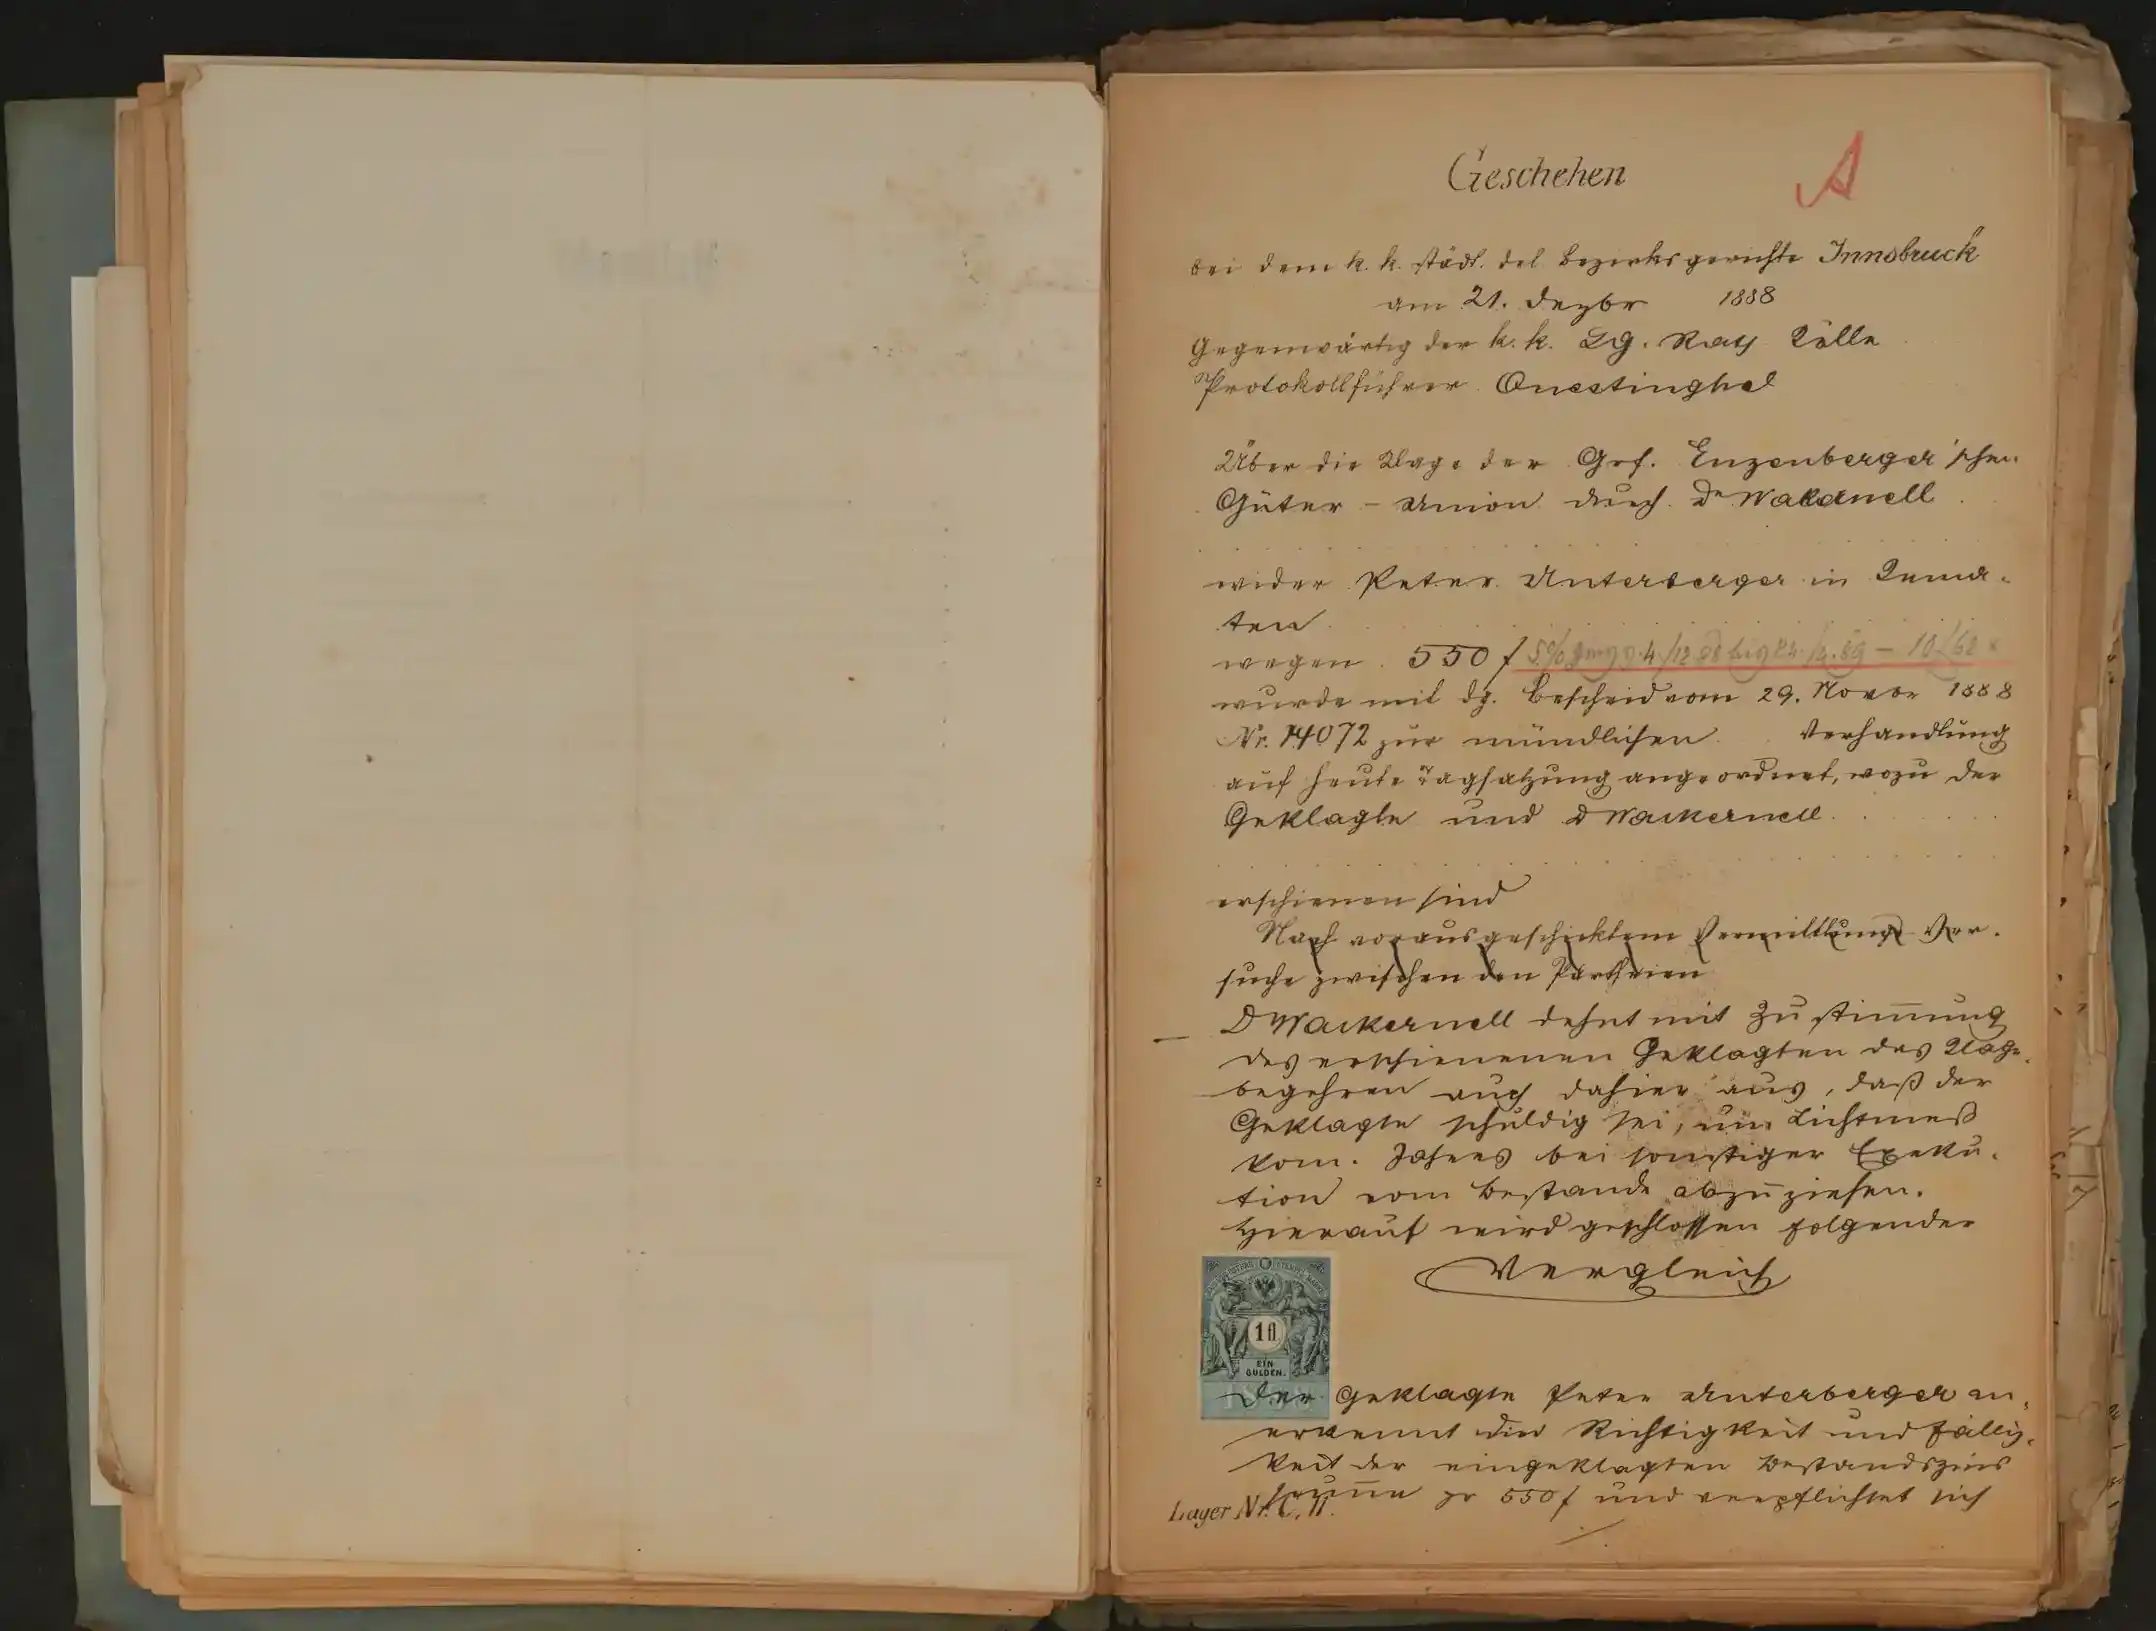 Geschehen
A
bei dem k. k. städt. del. Bezirksgerichte Innsbruck
am 21. Dezbr 1888
Gegenwärtig der k. k. LG. Rath
Protokollführer
Über die Klage der Grf. Enzenberger'schen
Güter-Union durch Dr Wackernell
wider Peter Unterberger in Kema-
ten
wegen 550 f 5%
wurde mit dg. Bescheid vom 29. Novbr 1888
Nr. 14072 zur mündlichen Verhandlung
auf heute Tagsatzung angeordnet, wozu der
Geklagte und D Wackernell
erschienen sind
Nach vorausgeschicktem Vermittlungs-Ver-
suche zwischen den Partheien
D Wackernell dehnt mit Zustimmung
des erschienenen Geklagten das Klage-
begehren auch dahier aus, daß der
Geklagte schuldig sei, um Lichtmeß
kom. Jahres bei sonstiger Exeku-
tion vom Bestande abzuziehen.
Hierauf wird geschlossen folgender
Vergleich
1 fl.
EIN
GULDEN.
Der Geklagte Peter Unterberger an-
erkennt die Richtigkeit und Fällig-
keit der eingeklagten Bestandszins
summe pr 550 f und verpflichtet sich
Lager Nr. C, 11.